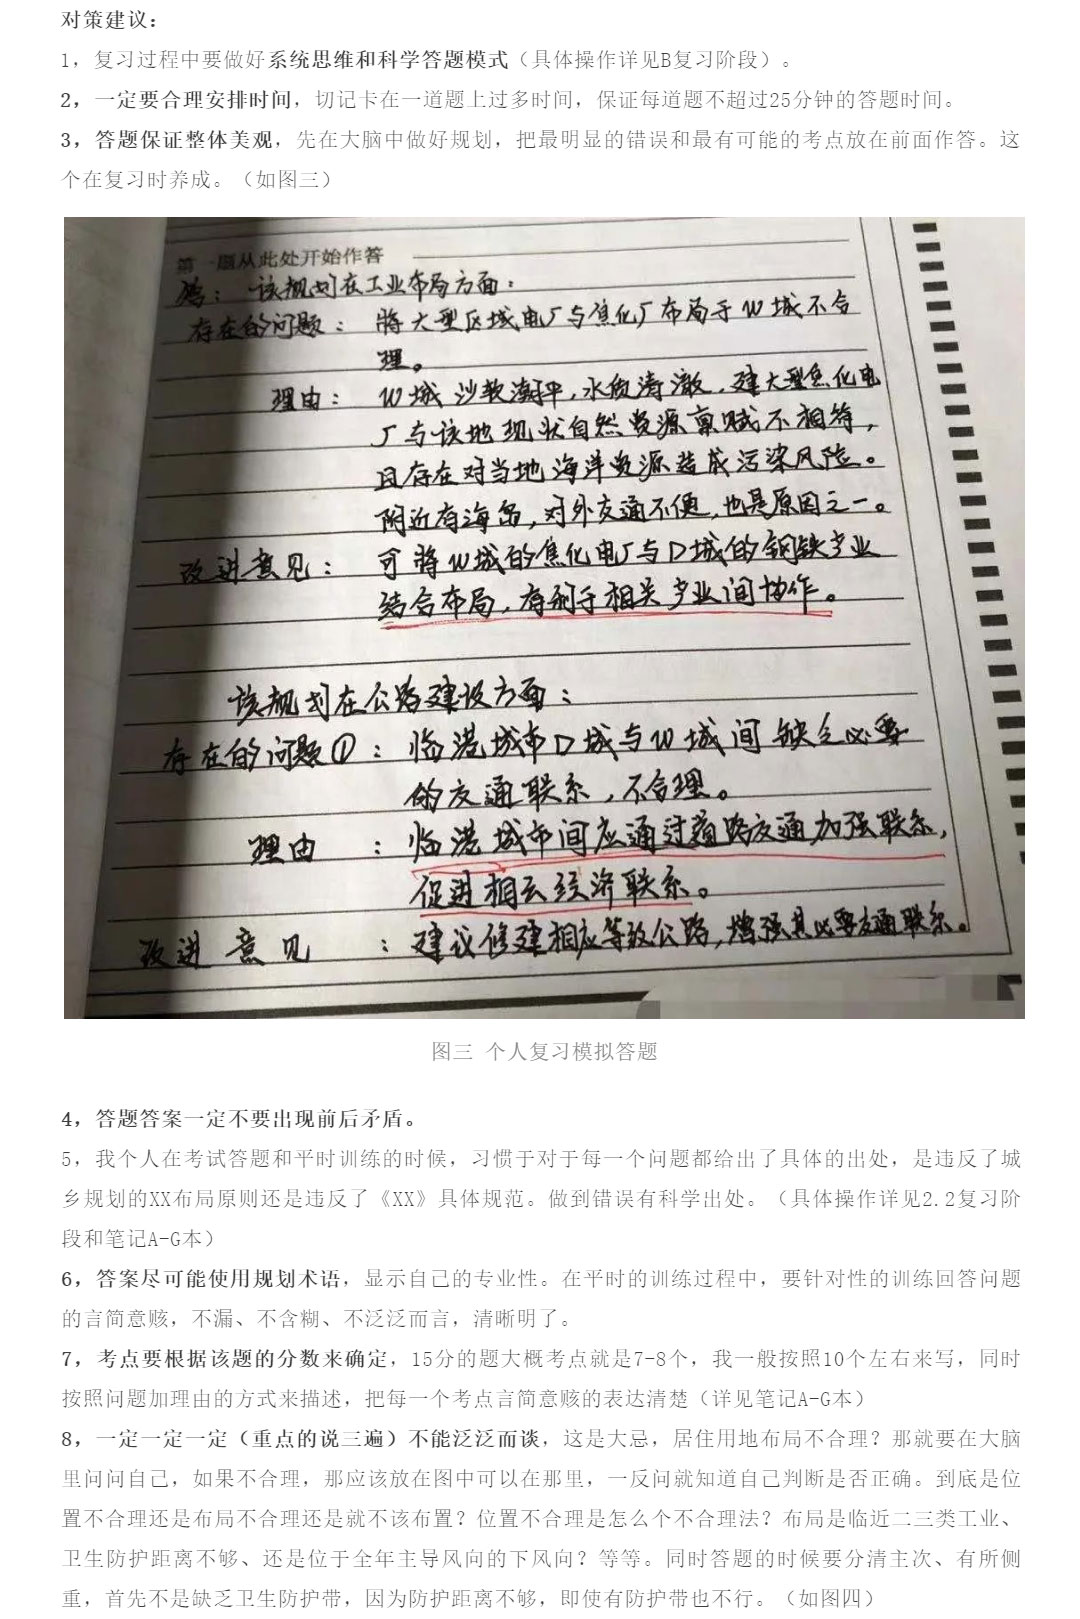 对策建议：
1，复习过程中要做好系统思维和科学答题模式（具体操作详见B复习阶段）。
2，一定要合理安排时间，切记卡在一道题上过多时间，保证每道题不超过25分钟的答题时间。
3，答题保证整体美观，先在大脑中做好规划，把最明显的错误和最有可能的考点放在前面作答。这
个在复习时养成。（如图三）
第一题从此处开始作答
答：该规划在工业布局方面：
存在的问题：将大型区域电厂与焦化厂布局于W城不合
理。
理由：W城沙软潮平，水质清澈，建大型焦化电
厂与该地现状自然资源禀赋不相符，
且存在对当地海洋资源造成污染风险。
附近有海岛，对外交通不便，也是原因之一。
改进意见：可将W城的焦化电厂与D城的钢铁产业
结合布局，有利于相关产业间协作。
该规划在公路建设方面：
存在的问题①：临港城市D城与W城间缺乏必要
的交通联系，不合理。
理由：临港城市间应通过道路交通加强联系，
促进相互经济联系。
改进意见：建议修建相应等级公路，增强其必要交通联系。
图三 个人复习模拟答题
4，答题答案一定不要出现前后矛盾。
5，我个人在考试答题和平时训练的时候，习惯于对于每一个问题都给出了具体的出处，是违反了城
乡规划的XX布局原则还是违反了《XX》具体规范。做到错误有科学出处。（具体操作详见2.2复习阶
段和笔记A-G本）
6，答案尽可能使用规划术语，显示自己的专业性。在平时的训练过程中，要针对性的训练回答问题
的言简意赅，不漏、不含糊、不泛泛而言，清晰明了。
7，考点要根据该题的分数来确定，15分的题大概考点就是7-8个，我一般按照10个左右来写，同时
按照问题加理由的方式来描述，把每一个考点言简意赅的表达清楚（详见笔记A-G本）
8，一定一定一定（重点的说三遍）不能泛泛而谈，这是大忌，居住用地布局不合理？那就要在大脑
里问问自己，如果不合理，那应该放在图中可以在那里，一反问就知道自己判断是否正确。到底是位
置不合理还是布局不合理还是就不该布置？位置不合理是怎么个不合理法？布局是临近二三类工业、
卫生防护距离不够、还是位于全年主导风向的下风向？等等。同时答题的时候要分清主次、有所侧
重，首先不是缺乏卫生防护带，因为防护距离不够，即使有防护带也不行。（如图四）